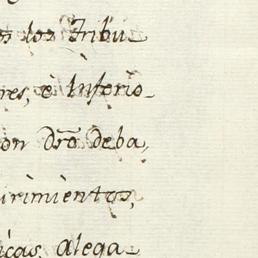 os los Tribu-
res, è Inferio-
on dr̃o deba,
irimientos,
icas, alega-